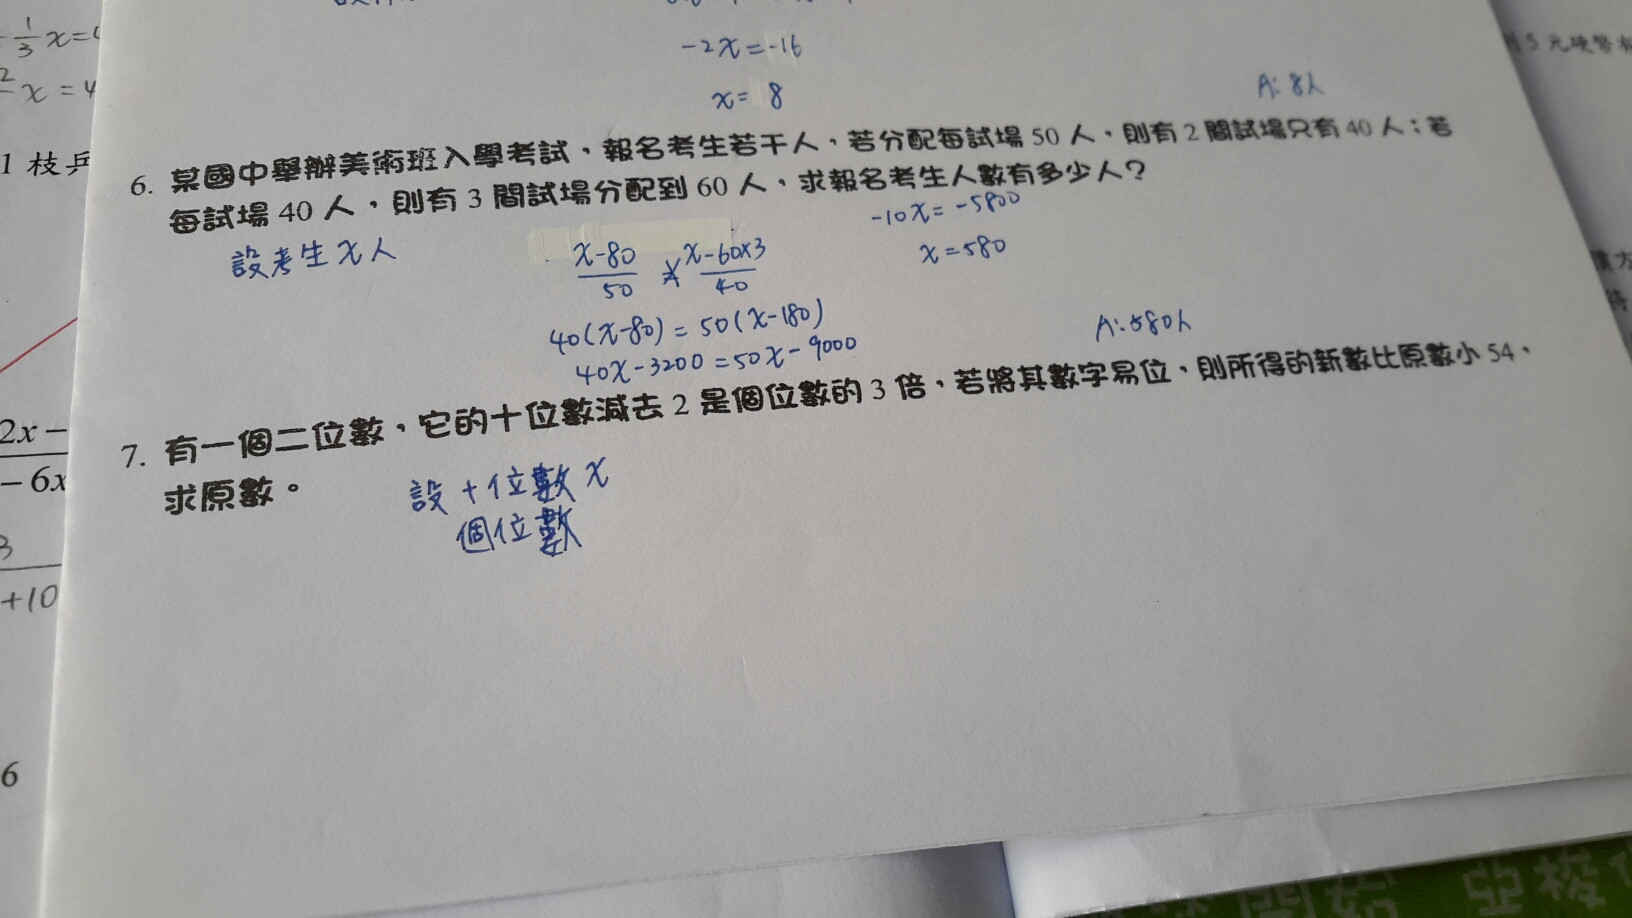 -2x=-16
x= 8
A: 8人
6. 某國中舉辦美術班入學考試,報名考生若干人,若分配每試場 50 人,則有 2 間試場只有 40 人;若
每試場 40 人,則有 3 間試場分配到 60 人,求報名考生人數有多少人?
設考生 x 人
x-80 x-60x3
50 40
40(x-80) = 50(x-180)
40x-3200 = 50x-9000
-10x = -5800
x=580
A: 580人
7. 有一個二位數,它的十位數減去 2 是個位數的 3 倍,若將其數字易位,則所得的新數比原數小 54,
求原數。
設十位數 x
個位數
1/3 x=
x = 4
1 枝兵
2x-
-6x
3
+10
6
5 元硬幣